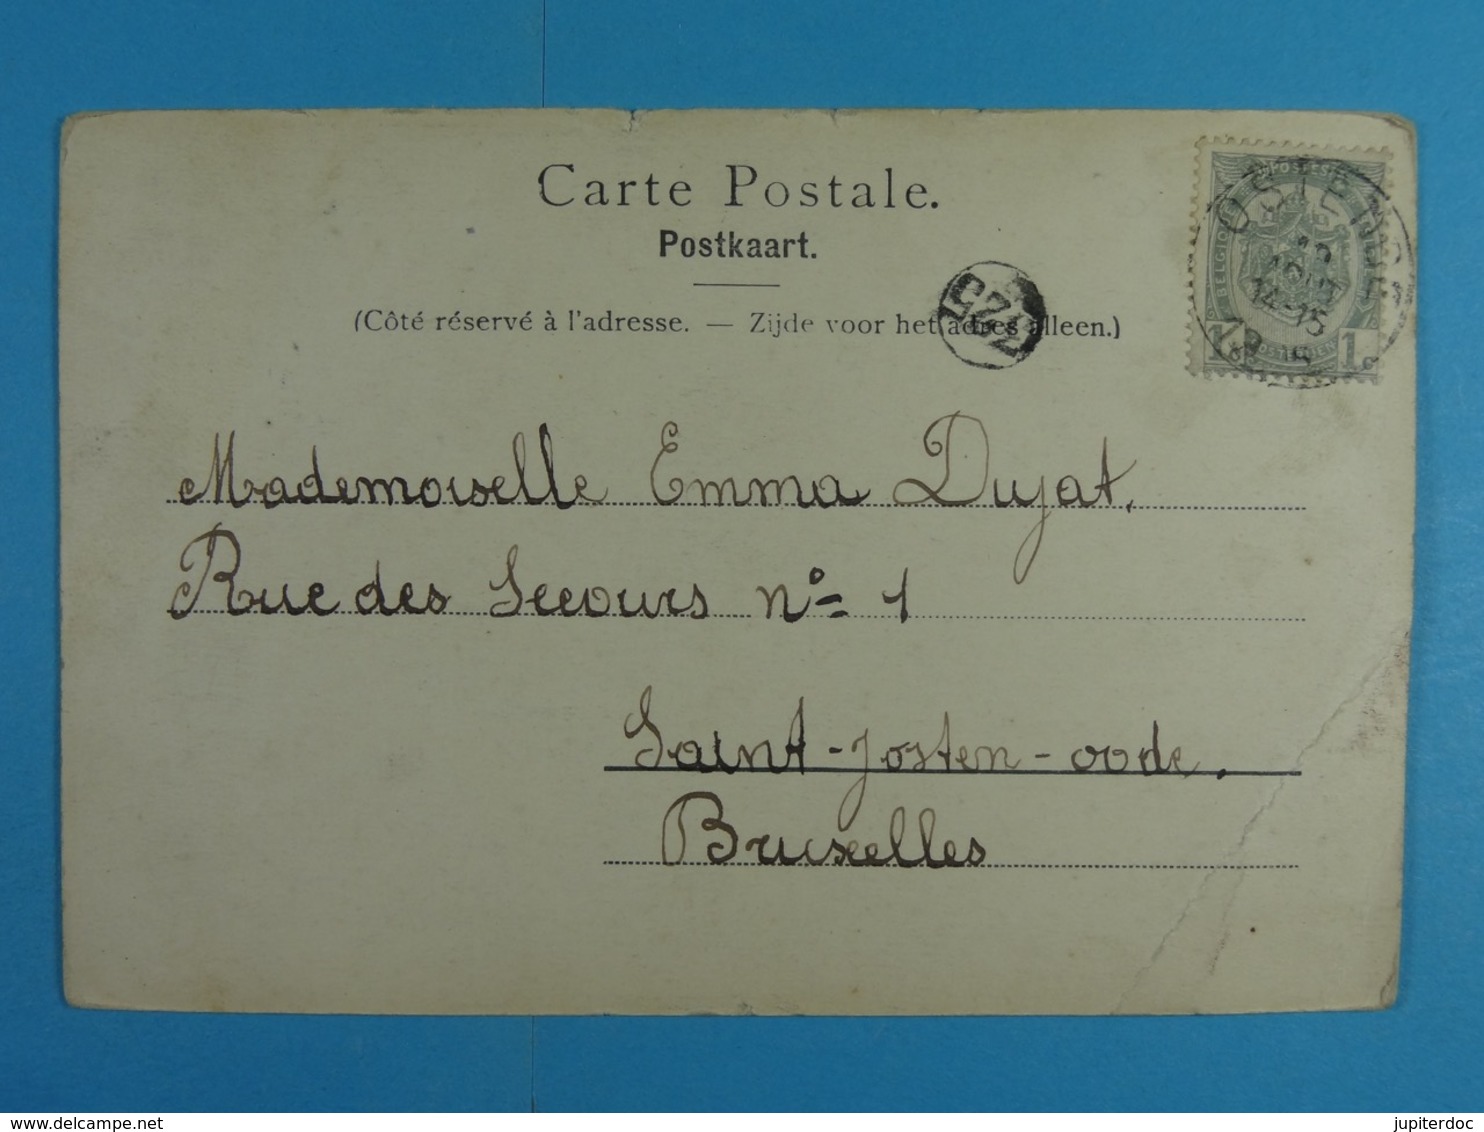 Carte Postale.
Postkaart.
(Côté réservé à l'adresse. — Zijde voor het adres alleen.)
OSTENDE
AOUT
14-15
1 1c
Mademoiselle Emma Dujat,
Rue des Secours n° 1
Saint-Josten-oode.
Bruxelles
www.delcampe.net
jupiterdoc